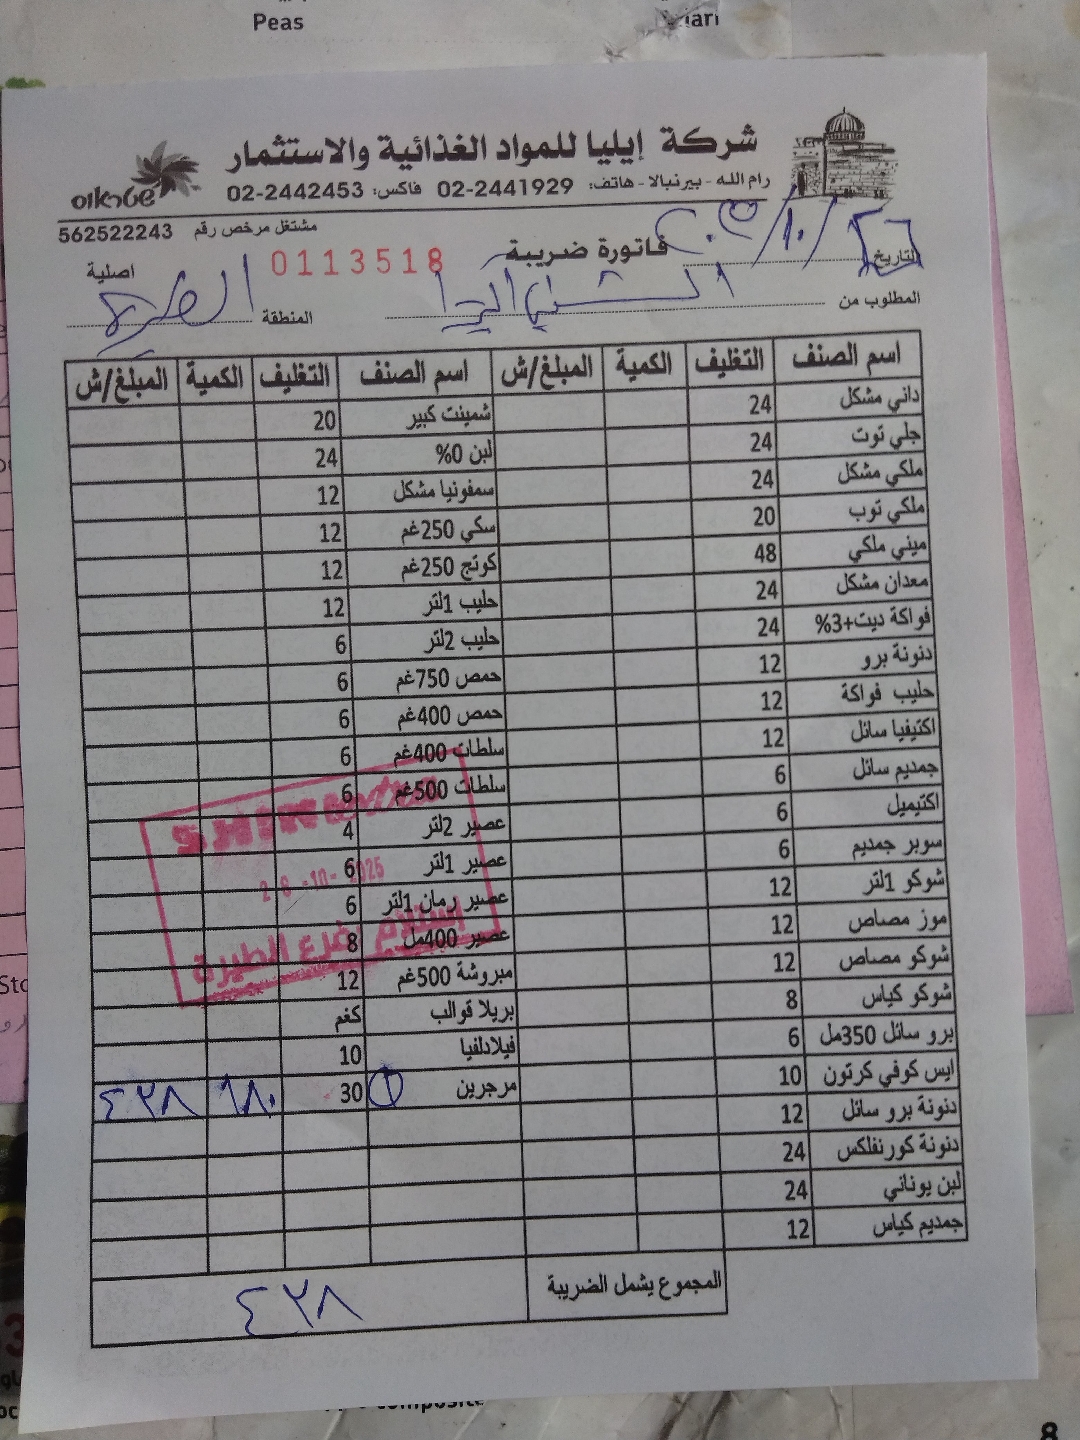 Peas
شركة إيليا للمواد الغذائية والاستثمار
رام الله - بيرنبالا - هاتف: 02-2441929 فاكس: 02-2442453
שטראוס
مشتغل مرخص رقم 562522243
التاريخ
فاتورة ضريبة
0113518
اصلية
المطلوب من
المنطقة الطيرة
اسم الصنف التغليف الكمية المبلغ/ش اسم الصنف التغليف الكمية المبلغ/ش
داني مشكل 24 شمينت كبير 20
جلي توت 24 لبن 0% 24
ملكي مشكل 24 سمفونيا مشكل 12
ملكي توب 20 سكي 250غم 12
ميني ملكي 48 كوتج 250غم 12
معدان مشكل 24 حليب 1لتر 12
فواكة ديت+3% 24 حليب 2لتر 6
دنونة برو 12 حمص 750غم 6
حليب فواكة 12 حمص 400غم 6
اكتيفيا سائل 12 سلطات 400غم 6
جمديم سائل 6 سلطات 500غم 6
اكتيميل 6 عصير 2لتر 4
سوبر جمديم 6 عصير 1لتر 6
شوكو 1لتر 12 عصير رمان 1لتر 6
موز مصاص 12 عصير 400مل 8
شوكو مصاص 12 مبروشة 500غم 12
شوكو كياس 8 بريلا قوالب كغم
برو سائل 350مل 6 فيلادلفيا 10
ايس كوفي كرتون 10 مرجرين ① 30 ٦٨٠ ٤٢٨
دنونة برو سائل 12
دنونة كورنفلكس 24
لبن يوناني 24
جمديم كياس 12
المجموع يشمل الضريبة ٤٢٨
28-10-2025
استلام فرع الطيرة
8